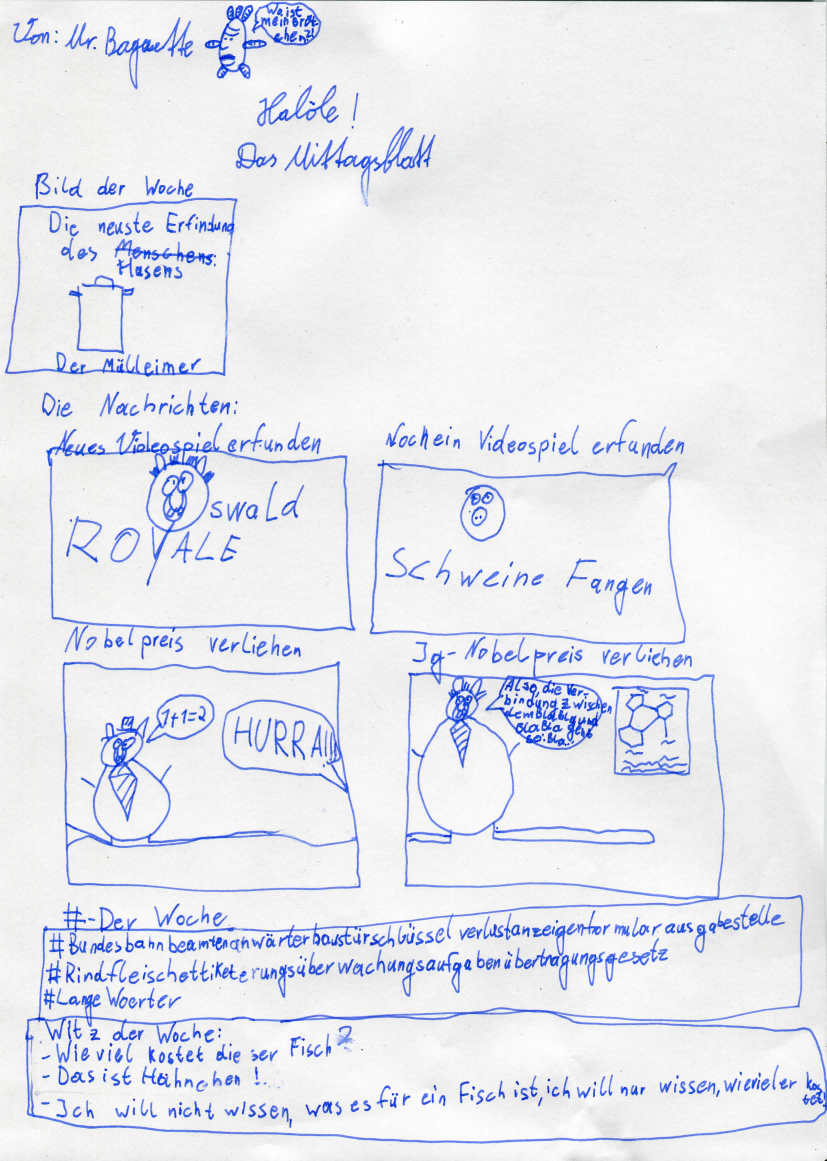 Von: Mr. Baguette
Wo ist
mein Bröt
chen?!
Halöle!
Das Mittagsblatt
Bild der Woche
Die neuste Erfindung
des Menschens:
Hasens
Der Mülleimer
Die Nachrichten:
Neues Videospiel erfunden
Oswald
ROYALE
Noch ein Videospiel erfunden
Schweine Fangen
Nobelpreis verliehen
1+1=2
HURRA!!!
Ig-Nobelpreis verliehen
Also, die Ver-
bindung zwischen
dem Blabla und
Blabla geht
so: Bla..
#-Der Woche
#Bundesbahnbeamtenanwärterhaustürschlüsselverlustanzeigenformularausgabestelle
#Rindfleischettiketerungsüberwachungsaufgabenübertragungsgesetz
#Lange Woerter
Witz der Woche:
- Wie viel kostet dieser Fisch?
- Das ist Hähnchen!
- Ich will nicht wissen, was es für ein Fisch ist, ich will nur wissen, wieviel er kos
tet!